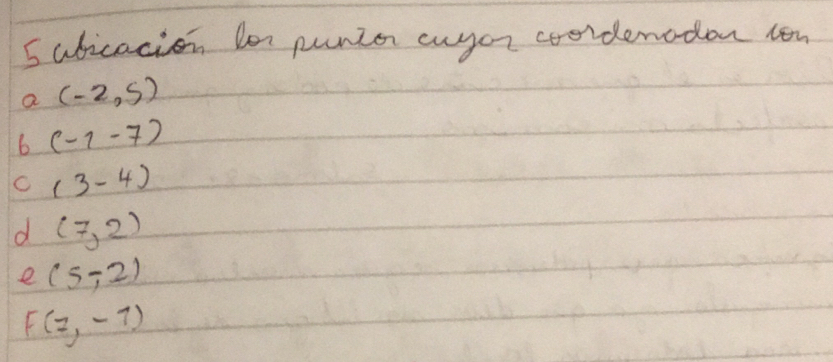 5 ubicación los puntos cuyas coordenadas son
a (-2,5)
b (-1 -7)
c (3-4)
d (7,2)
e (5,-2)
F(7, -1)